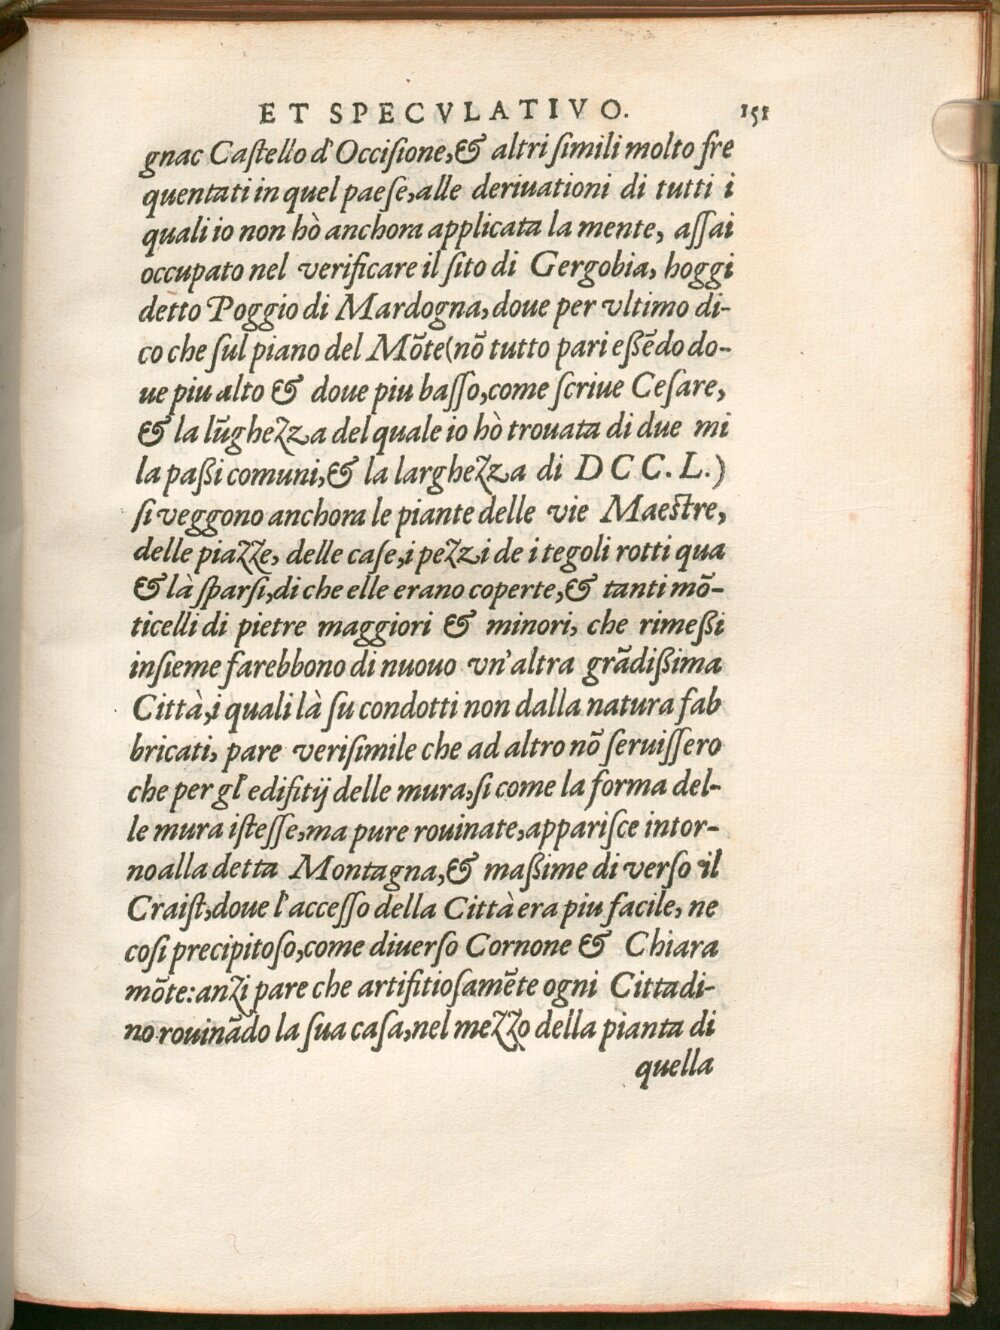 ET SPECVLATIVO. 151
gnac Castello d'Occisione,& altri simili molto fre
quentati in quel paese,alle deriuationi di tutti i
quali io non hò anchora applicata la mente, assai
occupato nel verificare il sito di Gergobia, hoggi
detto Poggio di Mardogna, doue per vltimo di-
co che sul piano del Mõte(nõ tutto pari eßẽdo do-
ue piu alto & doue piu basso,come scriue Cesare,
& la lũghezza del quale io hò trouata di due mi
la paßi comuni,& la larghezza di DCC.L.)
si veggono anchora le piante delle vie Maestre,
delle piazze, delle case,i pezzi de i tegoli rotti qua
& là sparsi,di che elle erano coperte,& tanti mõ-
ticelli di pietre maggiori & minori, che rimeßi
insieme farebbono di nuouo vn'altra grãdißima
Città,i quali là su condotti non dalla natura fab
bricati, pare verisimile che ad altro nõ seruissero
che per gl'edifitij delle mura,si come la forma del-
le mura istesse,ma pure rouinate,apparisce intor-
no alla detta Montagna,& maßime di verso il
Craist,doue l'accesso della Città era piu facile, ne
cosi precipitoso,come diuerso Cornone & Chiara
mõte:anzi pare che artifitiosamẽte ogni Cittadi-
no rouinãdo la sua casa,nel mezzo della pianta di
quella